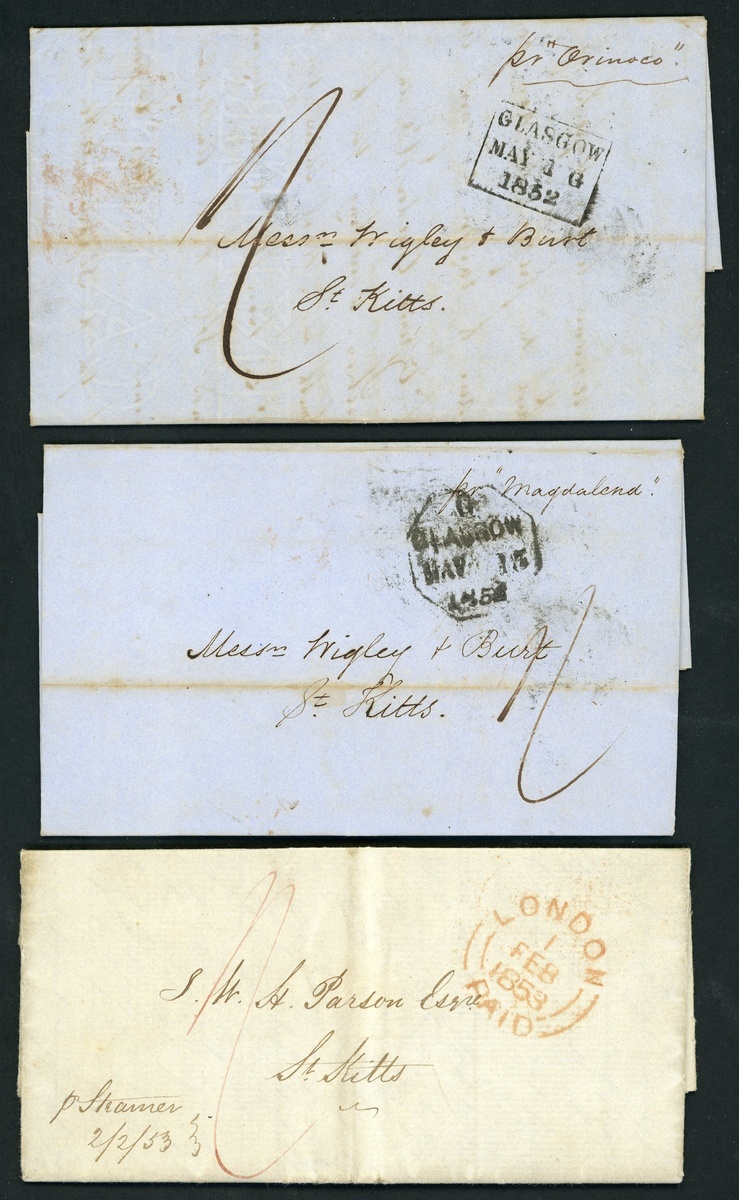 pr "Orinoco".
GLASGOW
MAY 1 G
1852
Messrs Wigley & Burt
St. Kitts.
pr "Magdalena".
G
GLASGOW
MAY 15
1852
Messrs Wigley & Burt
St. Kitts.
LONDON
1
FEB
1853
PAID
J. W. H. Parson Esqre
St. Kitts
p Steamer
2/2/53